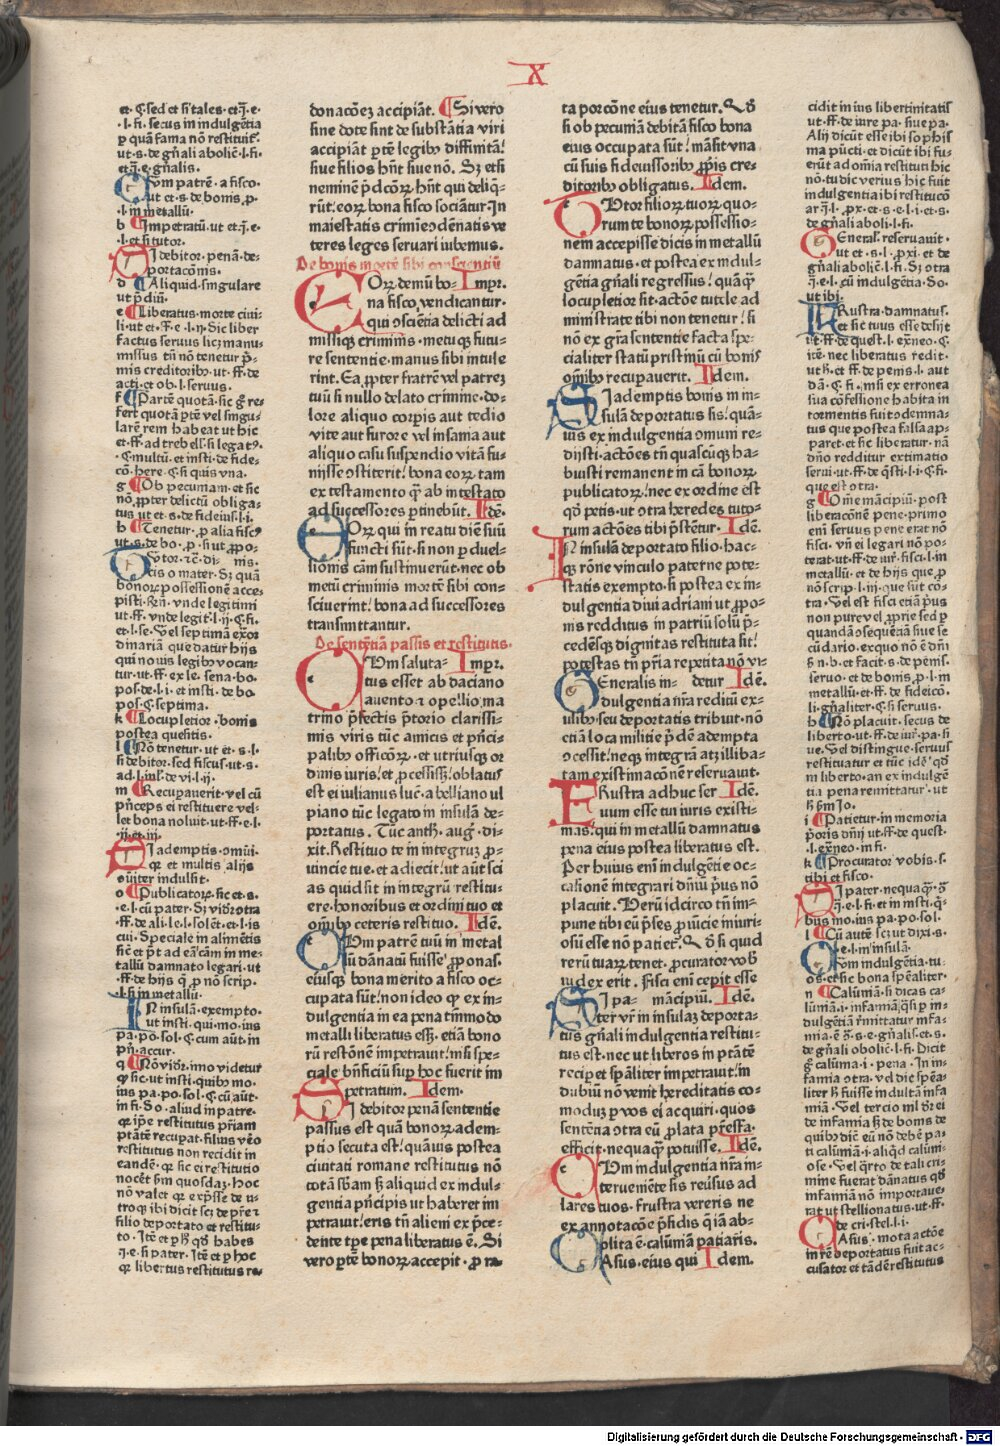 X
et. C. sed et si tales. et q̄. e.
l. fi. secus in indulgētia
p quā fama nō restituit.
ut. s. de gn̄ali abolic̄. l. fi.
et q̄. e. gn̄alis.
Cum patrē. a fisco.
ut et. s. de bonis. p.
l. in metallū.
b Imperatū. ut et. q̄. e.
l. et si tutor.
Si debitor. penā. de-
portac̄onis.
d Aliquid. singulare
ut p̄diū.
e Liberatus. morte ciui-
li. ut et. ff. e. l. ij. Sic liber
factus seruus licz manu-
missus tn̄ nō tenetur p̄-
mis creditoribꝰ. ut. ff. de
acti. et ob. l. seruus.
f Partē quotā. sic gͦ re-
fert quotā ptē vel singu-
larē rem habeat ut hic
et. ff. ad trebell. si legatꝰ.
C. multū. et insti. de fide-
cō. here. C. si quis vna.
g Ob pecuniam. et sic
nō ꝓpter delictū obliga-
tus ut et. s. de fideiuss. l. i.
h Tenetur. p alia fiscꝰ
ut. s. de bo. p. si ut ꝓpo-
Tutor. ⁊c̄. di- nis.
cis o mater. Sꝫ quā
bonoꝝ possessionē acce-
pisti. Rn̄. vnde legitimi
ut. ff. vnde legit. l. ij. C. fi.
et. l. se. Vel septimā ex̄or
dinariā que datur hijs
qui nouis legibꝰ vocan-
tur. ut. ff. ex le. sena. bo.
pos. de. l. i. et insti. de bo.
pos. C. septima.
k Locupletior. bonis
postea quesitis.
l Nō tenetur. ut et. s. l.
si debitor. sed fiscus. ut. s.
ad. l. iul. de vi. l. ij.
m Recupauerit. vel cū
p̄nceps ei restituere vel-
let bona noluit. ut. ff. e. l.
ij. et. iij.
Si ademptis. omni-
qꝫ et multis alijs
oīniter indulsit.
o Publicatoꝝ. sic et. s.
e. l. cū pater. Sꝫ vidr̄ otra
ff. de ali. le. l. solēt. et. l. is
cui. Speciale in alimētis
sic̄ et p̄t ad eā cām in me-
tallū damnato legari. ut
ff. de hijs q̄ p nō scrip.
l. fi. in metallū.
In insulā. exempto.
ut insti. qui. mo. ius
pa. po. sol. C. cum aūt. in
pn̄. accur.
q Nō vidr̄. imo videtur
ꝙ sic. ut insti. quibꝰ mo.
ius pa. po. sol. C. cū aūt.
in fi. So. aliud in patre.
qꝫ ip̄e restitutus p̄riam
ptātē recupat. filius vēo
restitutus non recidit in
eandē. qꝫ sic ei restitutio
nocēt bm quosdaꝫ. hoc
nō valet qꝫ exp̄sse de u-
troqꝫ ibi dicit scꝫ de p̄re ⁊
filio deportato et restitu-
to. Itē et p hͦ ꝙ habes
q̄. e. si pater. Itē et p hoc
qꝫ libertus restitutus re-
donac̄oēꝫ accipiāt. Si vero
sine dote sint de substātia viri
accipiāt ptē legibꝰ diffinitā!
siue filios hn̄t siue nō. Sꝫ etsi
neminē p̄dc̄oꝝ hn̄t qui deliq̄-
rūt. eoꝝ bona fisco sociātur. In
maiestatis crimīe ↄdēnatis ve
teres leges seruari iubemus.
De bonis mortē sibi consciscentiū
Eoꝝ demū bo- Impr.
na fisco vendicantur.
qui ↄsciētia delicti ad
missiqꝫ criminis. metuqꝫ futu-
re sententie. manus sibi intule
rint. Ea ꝓpter fratrē vel patreꝫ
tuū si nullo delato crimine. do-
lore aliquo corꝑis aut tedio
vite aut furore vel insania aut
aliquo casu suspendio vitā fi-
nijsse ↄstiterit! bona eoꝝ. tam
ex testamento q̄ȝ ab intestato
ad successores ꝑtinebūt. Idē.
Eoꝝ qui in reatu diē suū
functi sūt. si non p duel-
lionis cām sustinuerūt. nec ob
metū criminis mortē sibi con-
sciuerint! bona ad successores
transmittantur.
De sentētiā passis et restitutis.
Cum saluta- Impr.
tus esset ab daciano
a uento a opellio ma
trino p̄fectis p̄torio clarissi-
mis viris tūc amicus et p̄nci-
palibꝰ officioꝝ. et utriusqꝫ or
dinis iuris! et ꝓcessissꝫ! oblatus
est ei iulianus luc̄. a belliano ul
piano tūc legato in insulā de-
portatus. Tūc anth. augꝰ. di-
xit. Restituo te in integruꝫ ꝓ-
uincie tue. et adiecit! ut aūt sci
as quid sit in integrū restitu-
ere. honoribus et ordini tuo et
omībꝰ ceteris restituo. Idē.
Cum patrē tuū in metal
lū dānatū fuisse! ꝓponas.
eiusqꝫ bona merito a fisco oc-
cupata sūt! non ideo qꝫ ex in-
dulgentia in ea pena tm̄modo
metalli liberatus essꝫ. etiā bono
rū restōnē impetrauit! nisi spe-
ciale bn̄ficiū suꝑ hoc fuerit im
petratum. Idem.
Si debitor penā sententie
passus est quā bonoꝝ adem-
ptio secuta est! quāuis postea
ciuitati romane restitutus nō
totā sb̄am sꝫ aliquid ex indul-
gentia p̄ncipis ut haberet im
petrauit! eris tn̄ alieni ex p̄ce-
dente tp̄e pena liberatus ē. Si
vero ptē bonoꝝ accepit. ꝓ ra-
ta porc̄one eius tenetur. Qꝫ
si ob pecuniā debitā fisco bona
eius occupata sūt! māsit vna
cū suis fideiussoribꝰ ꝓprijs cre-
ditoribꝰ obligatus. Idem.
Tutor filioꝝ tuoꝝ quo-
rum te bonoꝝ possessio-
nem accepisse dicis in metallū
damnatus. et postea ex indul-
gētia gn̄ali regressus! quāqꝫ
locupletior sit. actōe tutele ad
ministrate tibi non tenetur! si
nō ex gr̄a sententie facta! spe-
cialiter statū pristinū cū bonis
omībꝰ recupauerit. Idem.
Si ademptis bonis in in-
sulā deportatus sis! quā-
uis ex indulgentia omniū re-
dijsti. actōes tn̄ quascūqꝫ ha-
buisti remanent in cā bonoꝝ
publicatoꝝ! nec ex ordine est
ꝙ petis. ut otra heredes tuto-
rum actōes tibi p̄stētur. Idē.
In insulā deportato filio. hac-
qꝫ rōne vinculo paterne pote-
statis exempto. si postea ex in-
dulgentia diui adriani ut ꝓpo-
nis redditus in patriū solū p̄-
cedēsqꝫ dignitas restituta sit!
potestas tn̄ p̄ria repetita nō vi-
Generalis in- detur Idē.
dulgentia nr̄a reditū ex-
ulibꝰ seu deportatis tribuit. nō
etiā loca militie p̄dē adempta
ↄcessit! neqꝫ integrā atꝫ illiba-
tam existimac̄onē reseruauit.
Frustra adhuc ser Idē.
uum esse tui iuris existi-
mas! qui in metallū damnatus
pena eius postea liberatus est.
Per huius enī indulgētie oc-
casionē integrari dn̄iū p̄us nō
placuit. Verū idcirco tn̄ im-
pune tibi eū p̄ses ꝓuīcie iniuri-
osū esse nō patiet̄. Qꝫ si quid
rerū tuaꝝ tenet. ꝓcurator vob̄
iudex erit. si fisci enī cepit esse
Si pa- mācipiū. Idē.
ter vr̄ in insulaꝫ deporta-
tus gn̄ali indulgentia restitu-
tus est. nec ut liberos in ptātē
recipet sp̄aliter impetrauit! in
dubiū nō venit hereditatis co-
moduꝫ p vos ei acquiri. quos
sentētia otra eū ꝓlata p̄resſa.
efficit. nequaqꝫ potuisse. Idē.
Cum indulgentia nr̄a in-
teruemēte sis reūsus ad
lares tuos. frustra vereris ne
ex annotac̄oe p̄sidis q̄ iā ab-
olita ē. calūniā patiaris.
Casus. eius qui Idem.
cidit in ius libertinitatis
ut. ff. de iure pa. siue pa.
Alij dicūt esse ibi sophis
ma pūcti. et dicūt ibi fu-
erūt ad omīa restituti hic
nō. tu dic verius hic fuit
indulgentia ibi restitucō
ar q̄. l. px. et. s. e. l. i. et. s.
de gn̄ali aboli. l. fi.
General. reseruauit.
ut et. s. l. pxi. et de
gn̄ali abolic̄. l. fi. Sꝫ otra
q̄. e. l. cū indulgētia. So.
ut ibi.
Frustra. damnatus.
et sic tuus esse desijt
ut. ff. de quest. l. ex neo. C.
itē. nec liberatus redit.
ut h. et ff. de penis. l. aut
dā. C. fi. nisi ex erronea
sua cōfessione habita in
tormentis fuit odemna-
tus que postea falsa ap-
paret. et sic liberatur. nā
dn̄o redditur extimatio
serui. ut. ff. de q̄sti. l. i. C. fi.
que est otra.
g Om̄e mācipiū. post
liberacōnē pene. primo
enī seruus pene erat nō
fisci. vn̄ ei legari nō po-
terat. ut. ff. de iur̄. fisci. l. in
metallū. et de hijs que p
nō scrip. l. iij. que sūt cō-
tra. Vel est fisci etiā p̄us
non pure vel ꝓprie sed p
quandā osequētiā siue se
cūdario. ex quo nō ē dn̄i
h n. b. et facit. s. de penis.
seruo. et de bonis. p. l. in
metallū. et ff. de fideicō.
li. gn̄aliter. C. si seruus.
h Nō placuit. secus de
liberto. ut. ff. de iur̄. pa. si
ue. Vel distingue. seruus
restituatur et tūc idē! qd̄
in liberto. an ex indulgē
tia pena remittatur. ut
h bm Jo.
i Patietur. in memoria
p̄oris dn̄ij ut. ff. de quest.
l. ex neo. in fi.
k Procurator vobis. s.
tibi et fisco.
Si pater. nequaqꝫ. ꝙ
q̄. e. l. fi. et in insti. q̄-
bus mo. ius pa. po. sol.
l Cū autē scꝫ ut dixi. s.
e. l. in insulā.
Cum indulgētia. tu-
os. et sic bona sp̄ealiter.
n Calūniā. si dicas ca-
lūniā. i. infamiā. q̄si p in-
dulgētiā r̄mittatur infa-
mia. ē ꝙ. s. e. gn̄ali. et. s.
de gn̄ali abolic̄. l. fi. Dicit
gͦ calūnia. i. pena. In in-
famia otra. vel dic sp̄ea-
liter h̄ fuisse indultā infa
miā. Vel tercio mlꝰ hr̄ ei
de infamia sꝫ de bonis de
quibꝰ diē eū nō debē pa-
ti calūniā. i. aliqd calūni-
ose. Vel q̄rto de tali cri-
mine fuerat dānatus qd̄
infamiā nō importaue-
rat ut stellionatus. ut. ff.
de cri. stel. l. i.
Casus. mota actōe
in rē deportatus fuit ac-
cusator et tādē restitutus
Digitalisierung gefördert durch die Deutsche Forschungsgemeinschaft - DFG